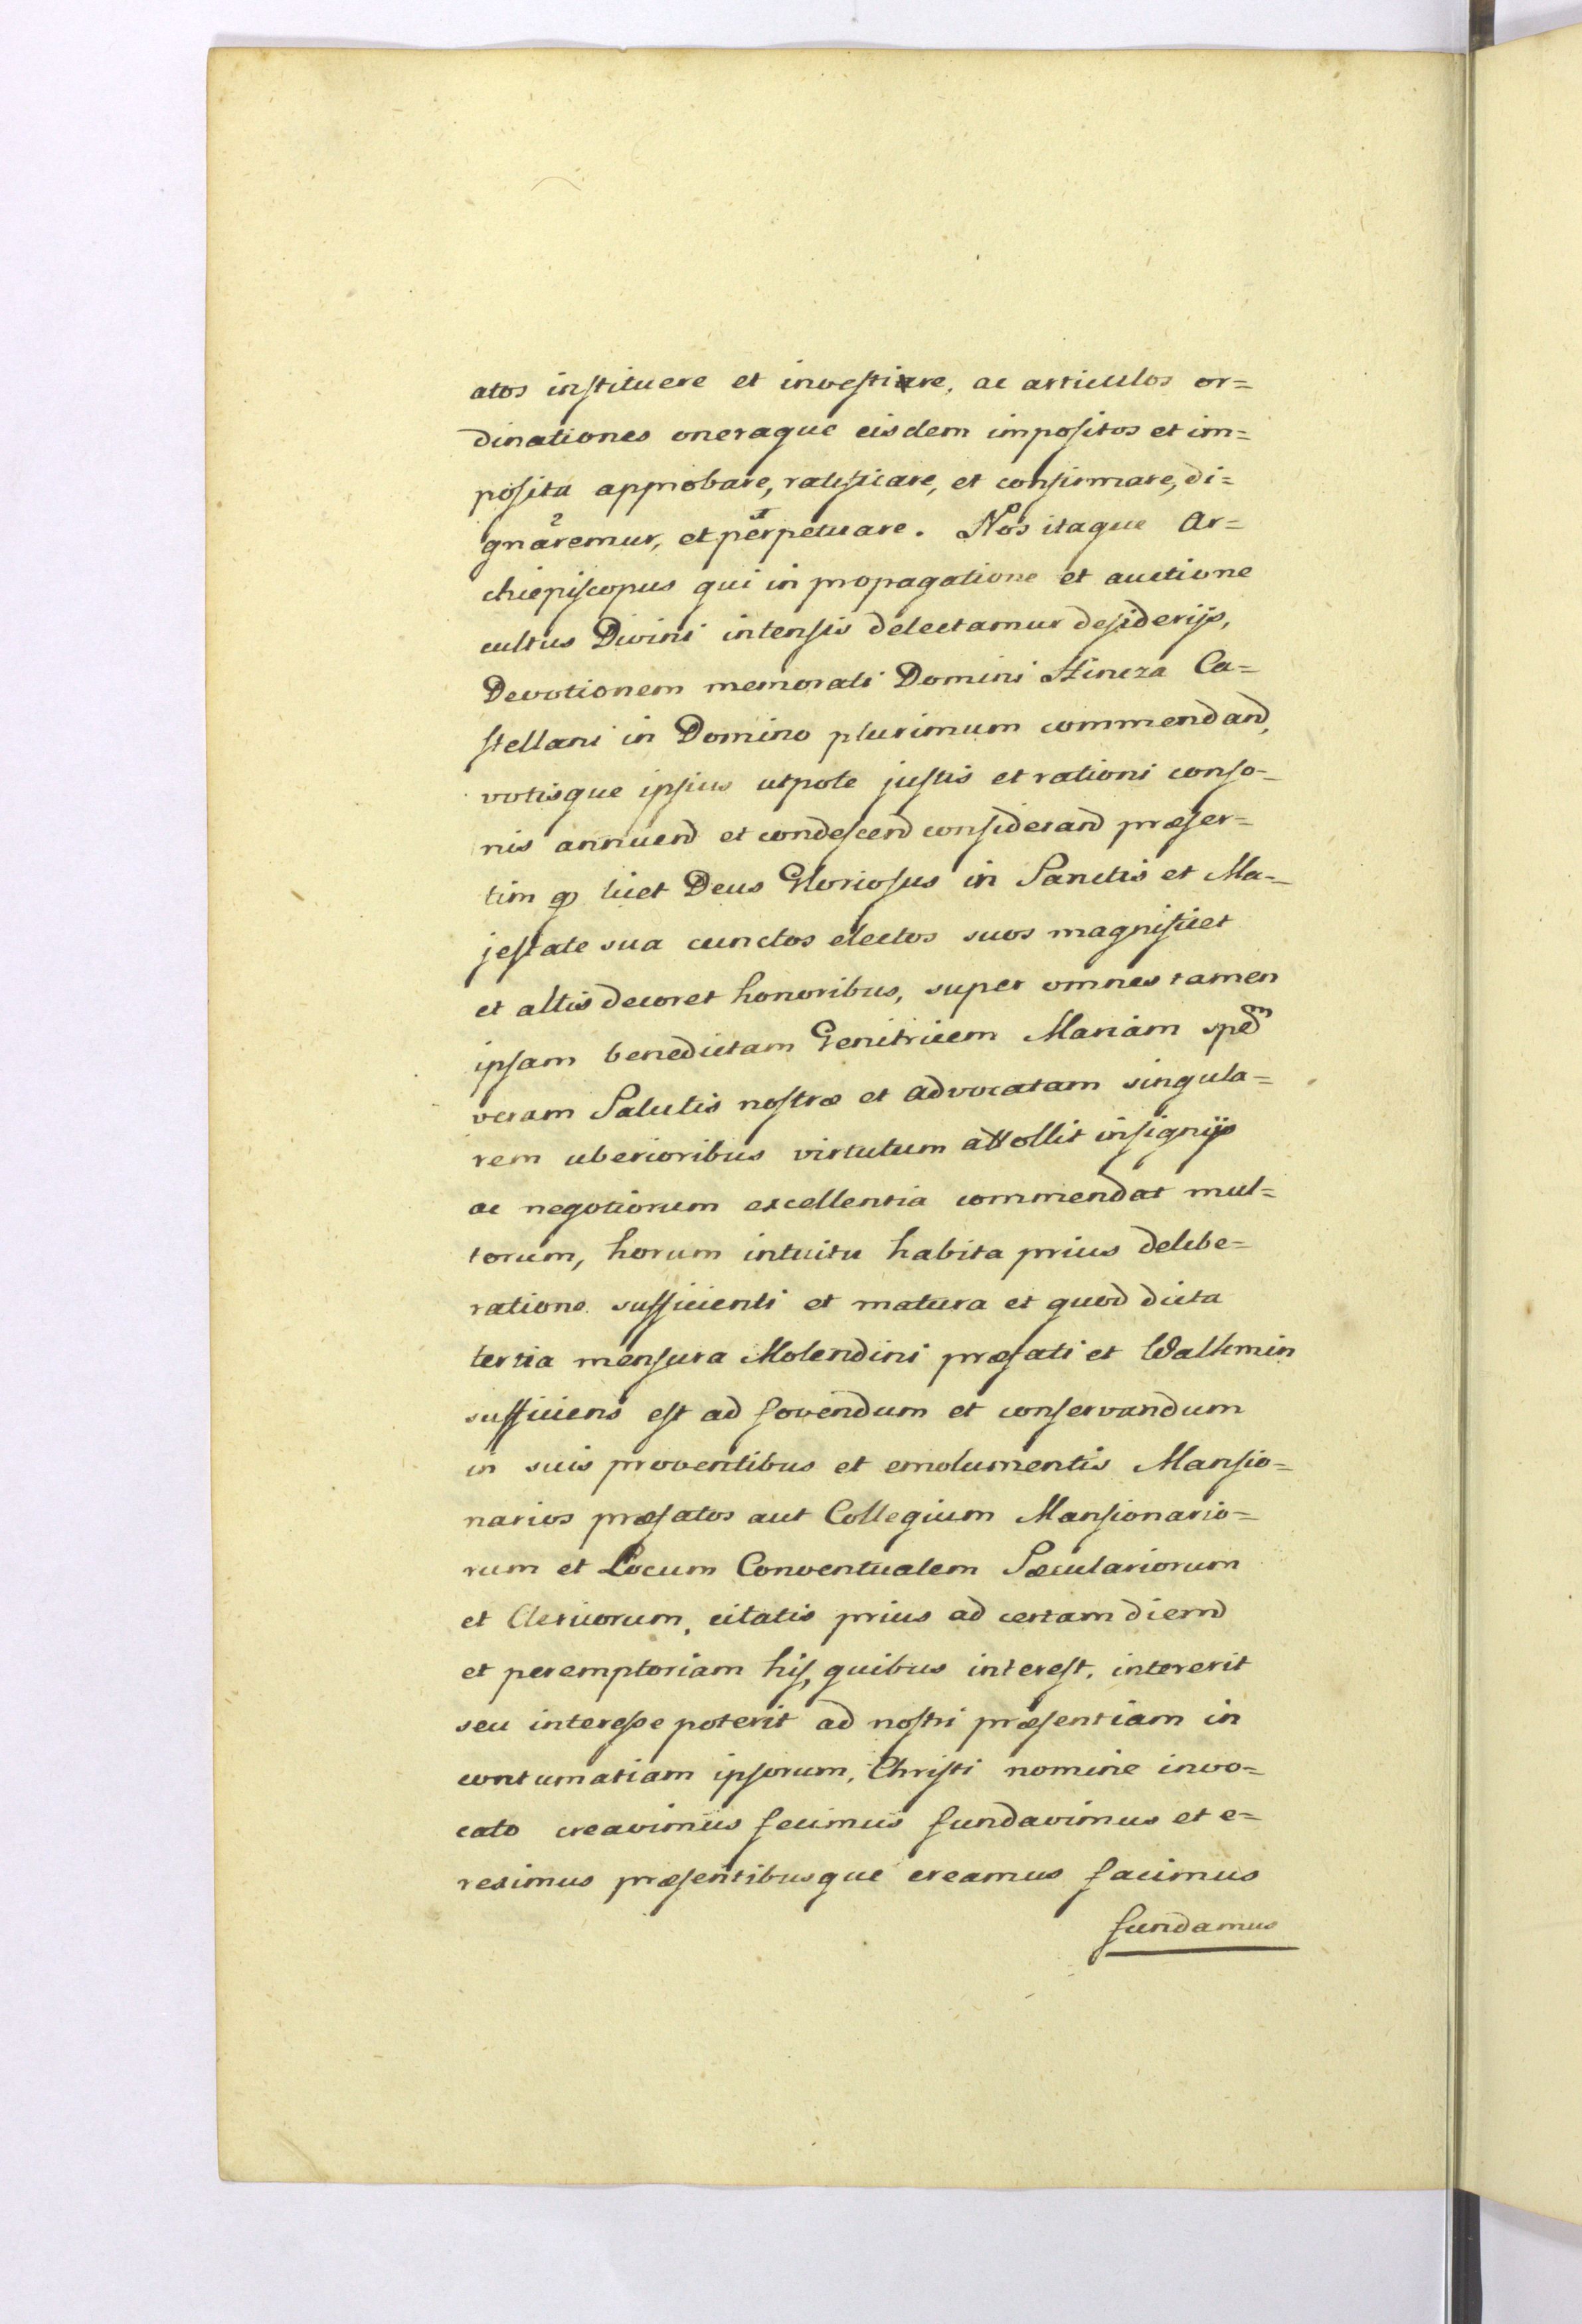 atos instituere et investire, ac articulos or=
dinationes oneraque eisdem impositos et im=
posita approbare, ratificare, et confirmare, di=
gnaremur, et perpetuare. Nos itaque Ar=
chiepiscopus qui in propagatione et auctione
cultus Divini intensis delectamur desiderijs,
Devotionem memorati Domini Hincza Ca=
stellani in Domino plurimum commendand,
votisque ipsius utpote justis et rationi conso=
nis annuend et condescend considerand præser=
tim qd licet Deus Gloriosus in Sanctis et Ma=
jestate sua cunctos electos suos magnificet
et altis decoret honoribus, super omnes tamen
ipsam benedictam Genitricem Mariam spem
veram Salutis nostræ et advocatam singula=
rem uberioribus virtutum attollit insignijs
ac negotiorum excellentia commendat mul=
torum, horum intuitu habita prius delibe=
ratione sufficienti et matura et quod dicta
tertia mensura Molendini præfati et Walkmin
sufficiens est ad fovendum et conservandum
in suis proventibus et emolumentis Mansio=
narios præfatos aut Collegium Mansionario=
rum et Locum Conventualem Sæculariorum
et Clericorum, citatis prius ad certam diem
et peremptoriam his, quibus interest, intererit
seu interesse poterit ad nostri præsentiam in
contumatiam ipsorum, Christi nomine invo=
cato creavimus fecimus fundavimus et e=
reximus præsentibusque creamus facimus
fundamus